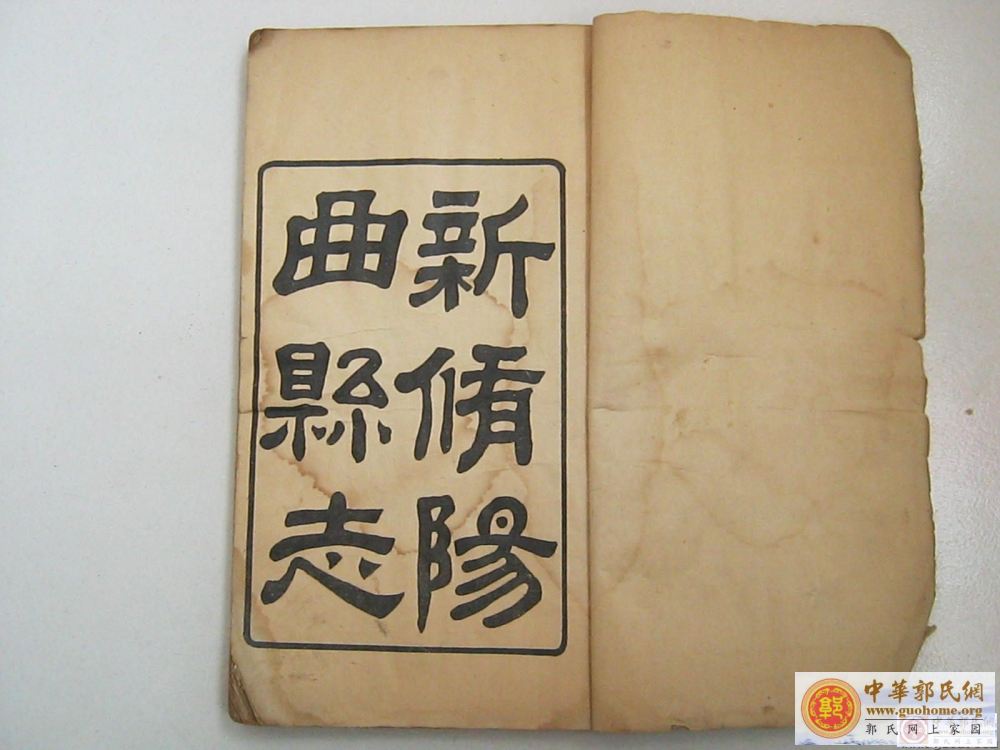 新脩陽
曲縣志
中華郭氏網
www.guohome.org
郭氏网上家园